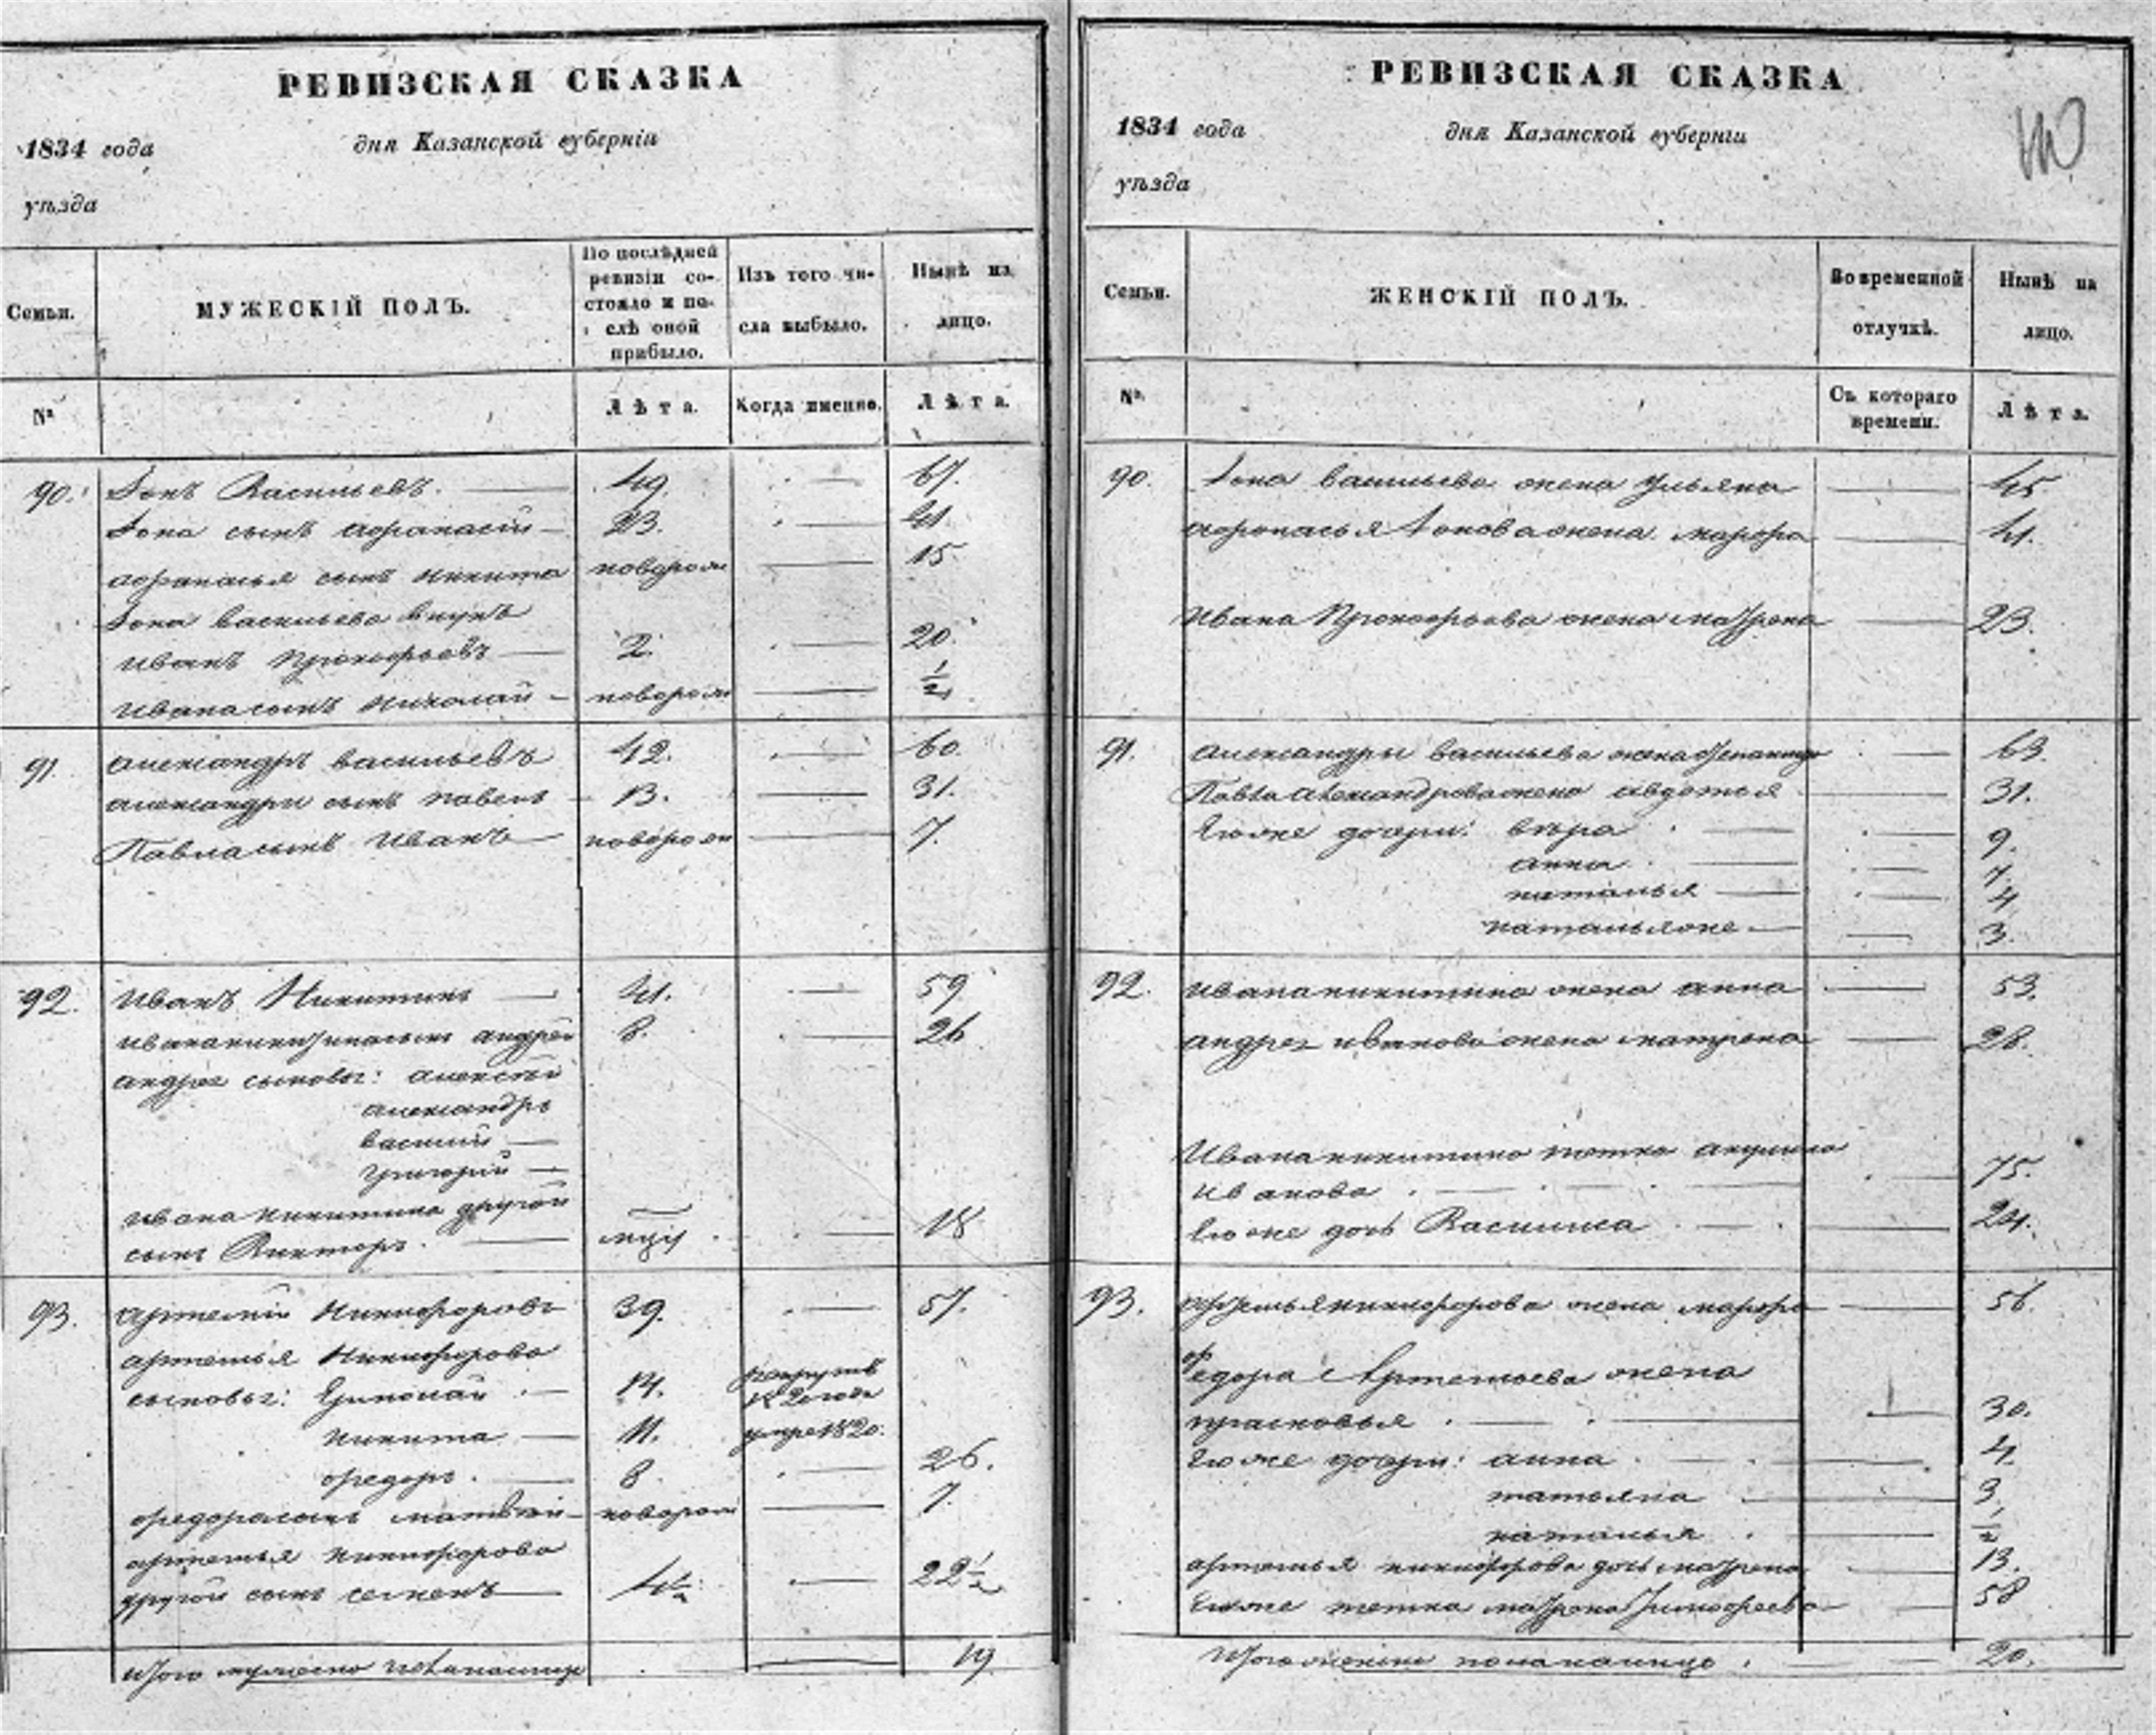 РЕВИЗСКАЯ СКАЗКА
1834 года
дня Казанской губерніи
уѣзда
Семьи.
МУЖЕСКІЙ ПОЛЪ.
По послѣдней ревизіи состояло и послѣ оной прибыло.
Изъ того числа выбыло.
Нынѣ на лицо.
№
Лѣта.
Когда именно.
Лѣта.
90. Іонъ Васильевъ. 49. 67.
Іона сынъ Афанасій 23. 41.
Афанасья сынъ Никита новорож 15
Іона Васильева внукъ
Иванъ Прокофьевъ 2. 20.
Ивана сынъ Николай новорож ½
91 Александръ Васильевъ 42. 60.
Александры сынъ Павелъ 13. 31.
Павла сынъ Иванъ новорож 7.
92. Иванъ Никитинъ 41. 59
Ивана Никитина сынъ Андрей 8. 26
Андрея сыновья: Алексѣй
Александръ
Василій
Григорій
Ивана Никитина другой
сынъ Викторъ. 18
93. Артемій Никифоровъ 39. 57.
Артемья Никифорова
сыновья: Ермолай 14. рекрутъ
1820 года
Никита 11. умре 1820.
Федоръ. 8 26.
Федора сынъ Матвѣй новорож 7.
Артемья Никифорова
другой сынъ Семенъ 4½ 22½
Итого мужеска пола налицо 19
РЕВИЗСКАЯ СКАЗКА
1834 года
дня Казанской губерніи
уѣзда
Семьи.
ЖЕНСКІЙ ПОЛЪ.
Во временной отлучкѣ.
Нынѣ на лицо.
№.
Съ котораго времени.
Лѣта.
90. Іона Васильева жена Ульяна 45
Афонасья Іонова жена Марфа 41.
Ивана Прокофьева жена Матрена 23.
91. Александры Васильева жена 63.
Павла Александрова жена Авдотья 31.
Ево же дочери: Вѣра 9.
Анна 7.
Наталья 4
Наталья же 3.
92. Ивана Никитина жена Анна 53.
Андрея Иванова жена Матрена 28.
Ивана Никитина тетка Акулина
Иванова 75.
Ево же дочь Василиса 24.
93. Артемья Никифорова жена Марфа 56.
Федора Артемьева жена
Прасковья 30.
Ево же дочери: Анна 4.
Татьяна 3.
Наталья ½
Артемья Никифорова дочь Матрена 13.
Ево же тетка Матрена Тимофеева 58
Итого женска пола налицо 20.